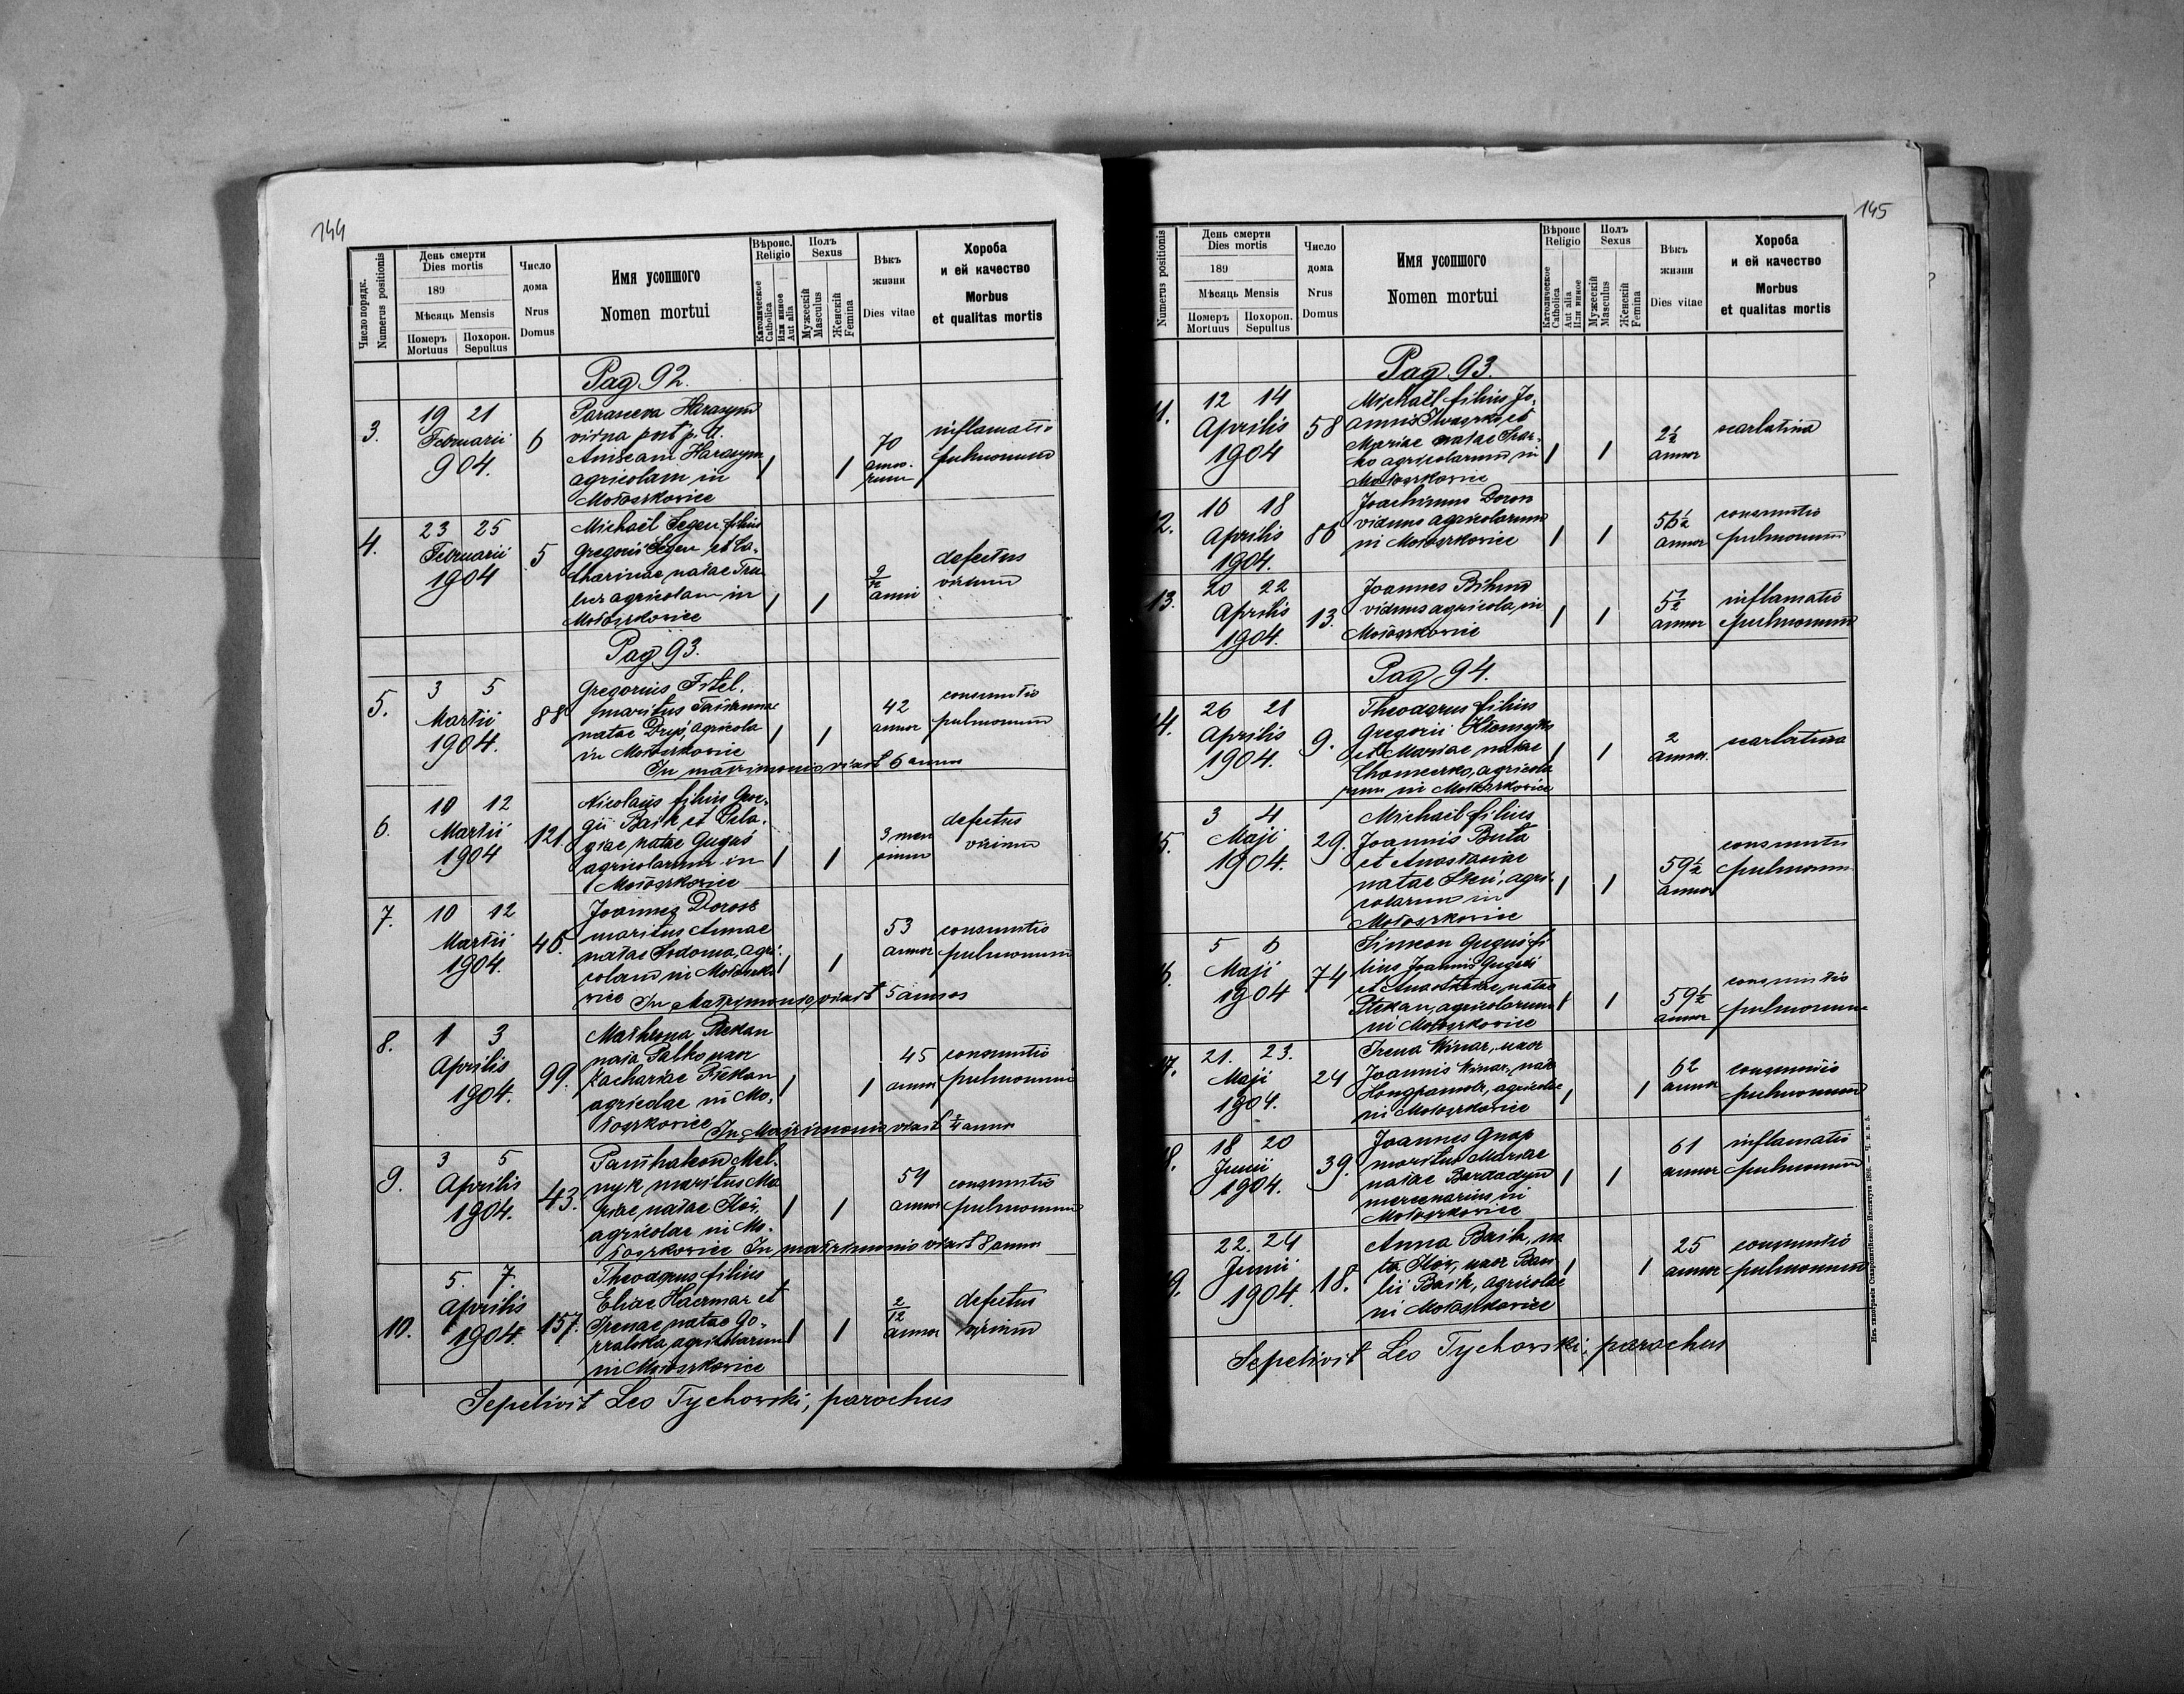 144
Число порядк.
Numerus positionis
День смерти
Dies mortis
189
Мѣсяць Mensis
Померъ Похорон.
Mortuus Sepultus
Число
дома
Nrus
Domus
Имя усопшого
Nomen mortui
Вѣроис.
Religio
Католическое
Catholica
Или инное
Aut alia
Полъ
Sexus
Мужескій
Masculus
Женскій
Femina
Вѣкъ
жизни
Dies vitae
Хороба
и ей качество
Morbus
et qualitas mortis
Pag 92.
3.
19 21
Februarii
904.
6
Parasceva Harasym
vidua post p. d.
Harasym
agricolam in
Mołoszkovice
70
anno-
rum
inflamatio
pulmonum
4.
23 25
Februarii
1904
5
Michaël Segen filius
Gregorii Segen et Ca-
tharinae natae
agricolam in
Mołoszkovice
anni
defectus
virium
Pag 93.
5.
3 5
Martii
1904.
88
Gregorius Fitel,
maritus Tatiannae
natae agricola
in Mołoszkovice
In matrimonio vixit 6 annos
42
annor
consumtio
pulmonum
6.
10 12
Martii
1904
121.
Nicolaus filius Geor-
gii Baik et Pela-
giae natae Guguś
agricolarum in
Mołoszkovice
3 men
sium
defectus
virium
7.
10 12
Martii
1904.
46.
Joannes Dorosz
maritus Annae
natae Sodoma, agri-
colam in Mołoszko
vice In Matrimonio vixit 5 annos
53
annor
consumtio
pulmonum
8.
1 3
Aprilis
1904.
99.
Mathrona Stekan
nata Palko uxor
Zachariae Stekan
agricolae in Mo-
łoszkovice In Matrimonio vixit annor
45
annor
consumtio
pulmonum
9.
3 5
Aprilis
1904.
43.
Panthaleon Mel-
nyk maritus Ma
riae natae Kłos,
agricolae in Mo-
łoszkovice In matrimonio vixit 8 annor
59
annor
consumtio
pulmonum
10.
5. 7.
Aprilis
1904.
157.
Theodorus filius
Eliae Haczmar et
Irenae natae Go-
ralska, agricolarum
in Mołoszkovice
2/12
annor
defectus
virium
Sepelivit Leo Tychowski, parochus
145
Numerus positionis
День смерти
Dies mortis
189
Мѣсяць Mensis
Померъ Похорон.
Mortuus Sepultus
Число
дома
Nrus
Domus
Имя усопшого
Nomen mortui
Вѣроис
Religio
Католическое
Catholica
Aut alia
Или инное
Полъ
Sexus
Мужескій
Masculus
Женскій
Femina
Вѣкъ
жизни
Dies vitae
Хороба
и ей качество
Morbus
et qualitas mortis
Pag 93.
11.
12 14
Aprilis
1904
58
Michaël filius Jo-
annis Iwaszko et
Mariae natae
agricolarum in
Mołoszkovice
2½
annor
scarlatina
12.
16 18
Aprilis
1904.
86
Joachimus Dorosz
viduus agricolarum
in Mołoszkovice
56½
annor
consumtio
pulmonum
13.
20 22
Aprilis
1904.
13.
Joannes Bihun
viduus agricola, in
Mołoszkovice
annor
inflamatio
pulmonum
Pag 94.
14.
26 28
Aprilis
1904.
9.
Theodorus filius
Gregorii
et Mariae natae
agricola
rum in Mołoszkovice
2
annor.
scarlatina
15.
3 4
Maji
1904.
29.
Michaël filius
Joannis Buta
et Anastasiae
natae agri-
colarum in
Mołoszkovice
59½
annor
consumtio
pulmonum
16.
5 6
Maji
1904
74
Simeon Guguś fi
lius Joannis Guguś
et Anastasiae, natae
Stekan, agricolarum
in Mołoszkovice
59½
annor
consumtio
pulmonum
17.
21. 23.
Maji
1904.
24
Irena Winar, uxor
Joannis Winar, nata
agricolae
in Mołoszkovice
62
annor
consumtio
pulmonum
18.
18 20
Junii
1904.
39.
Joannes Gnap
maritus Mariae
natae Bardadyn
mercenarius in
Mołoszkovice
61
annor
inflamatio
pulmonum
19.
22. 24
Junii
1904.
18.
Anna Baik, na
ta Kłos, uxor Basi
lii Baik, agricolae
in Mołoszkovice
25
annor
consumtio
pulmonum
Sepelivit Leo Tychowski, parochus
Изъ типографіи Ставропигійского Института 1896. — Ч. п. в. 5.